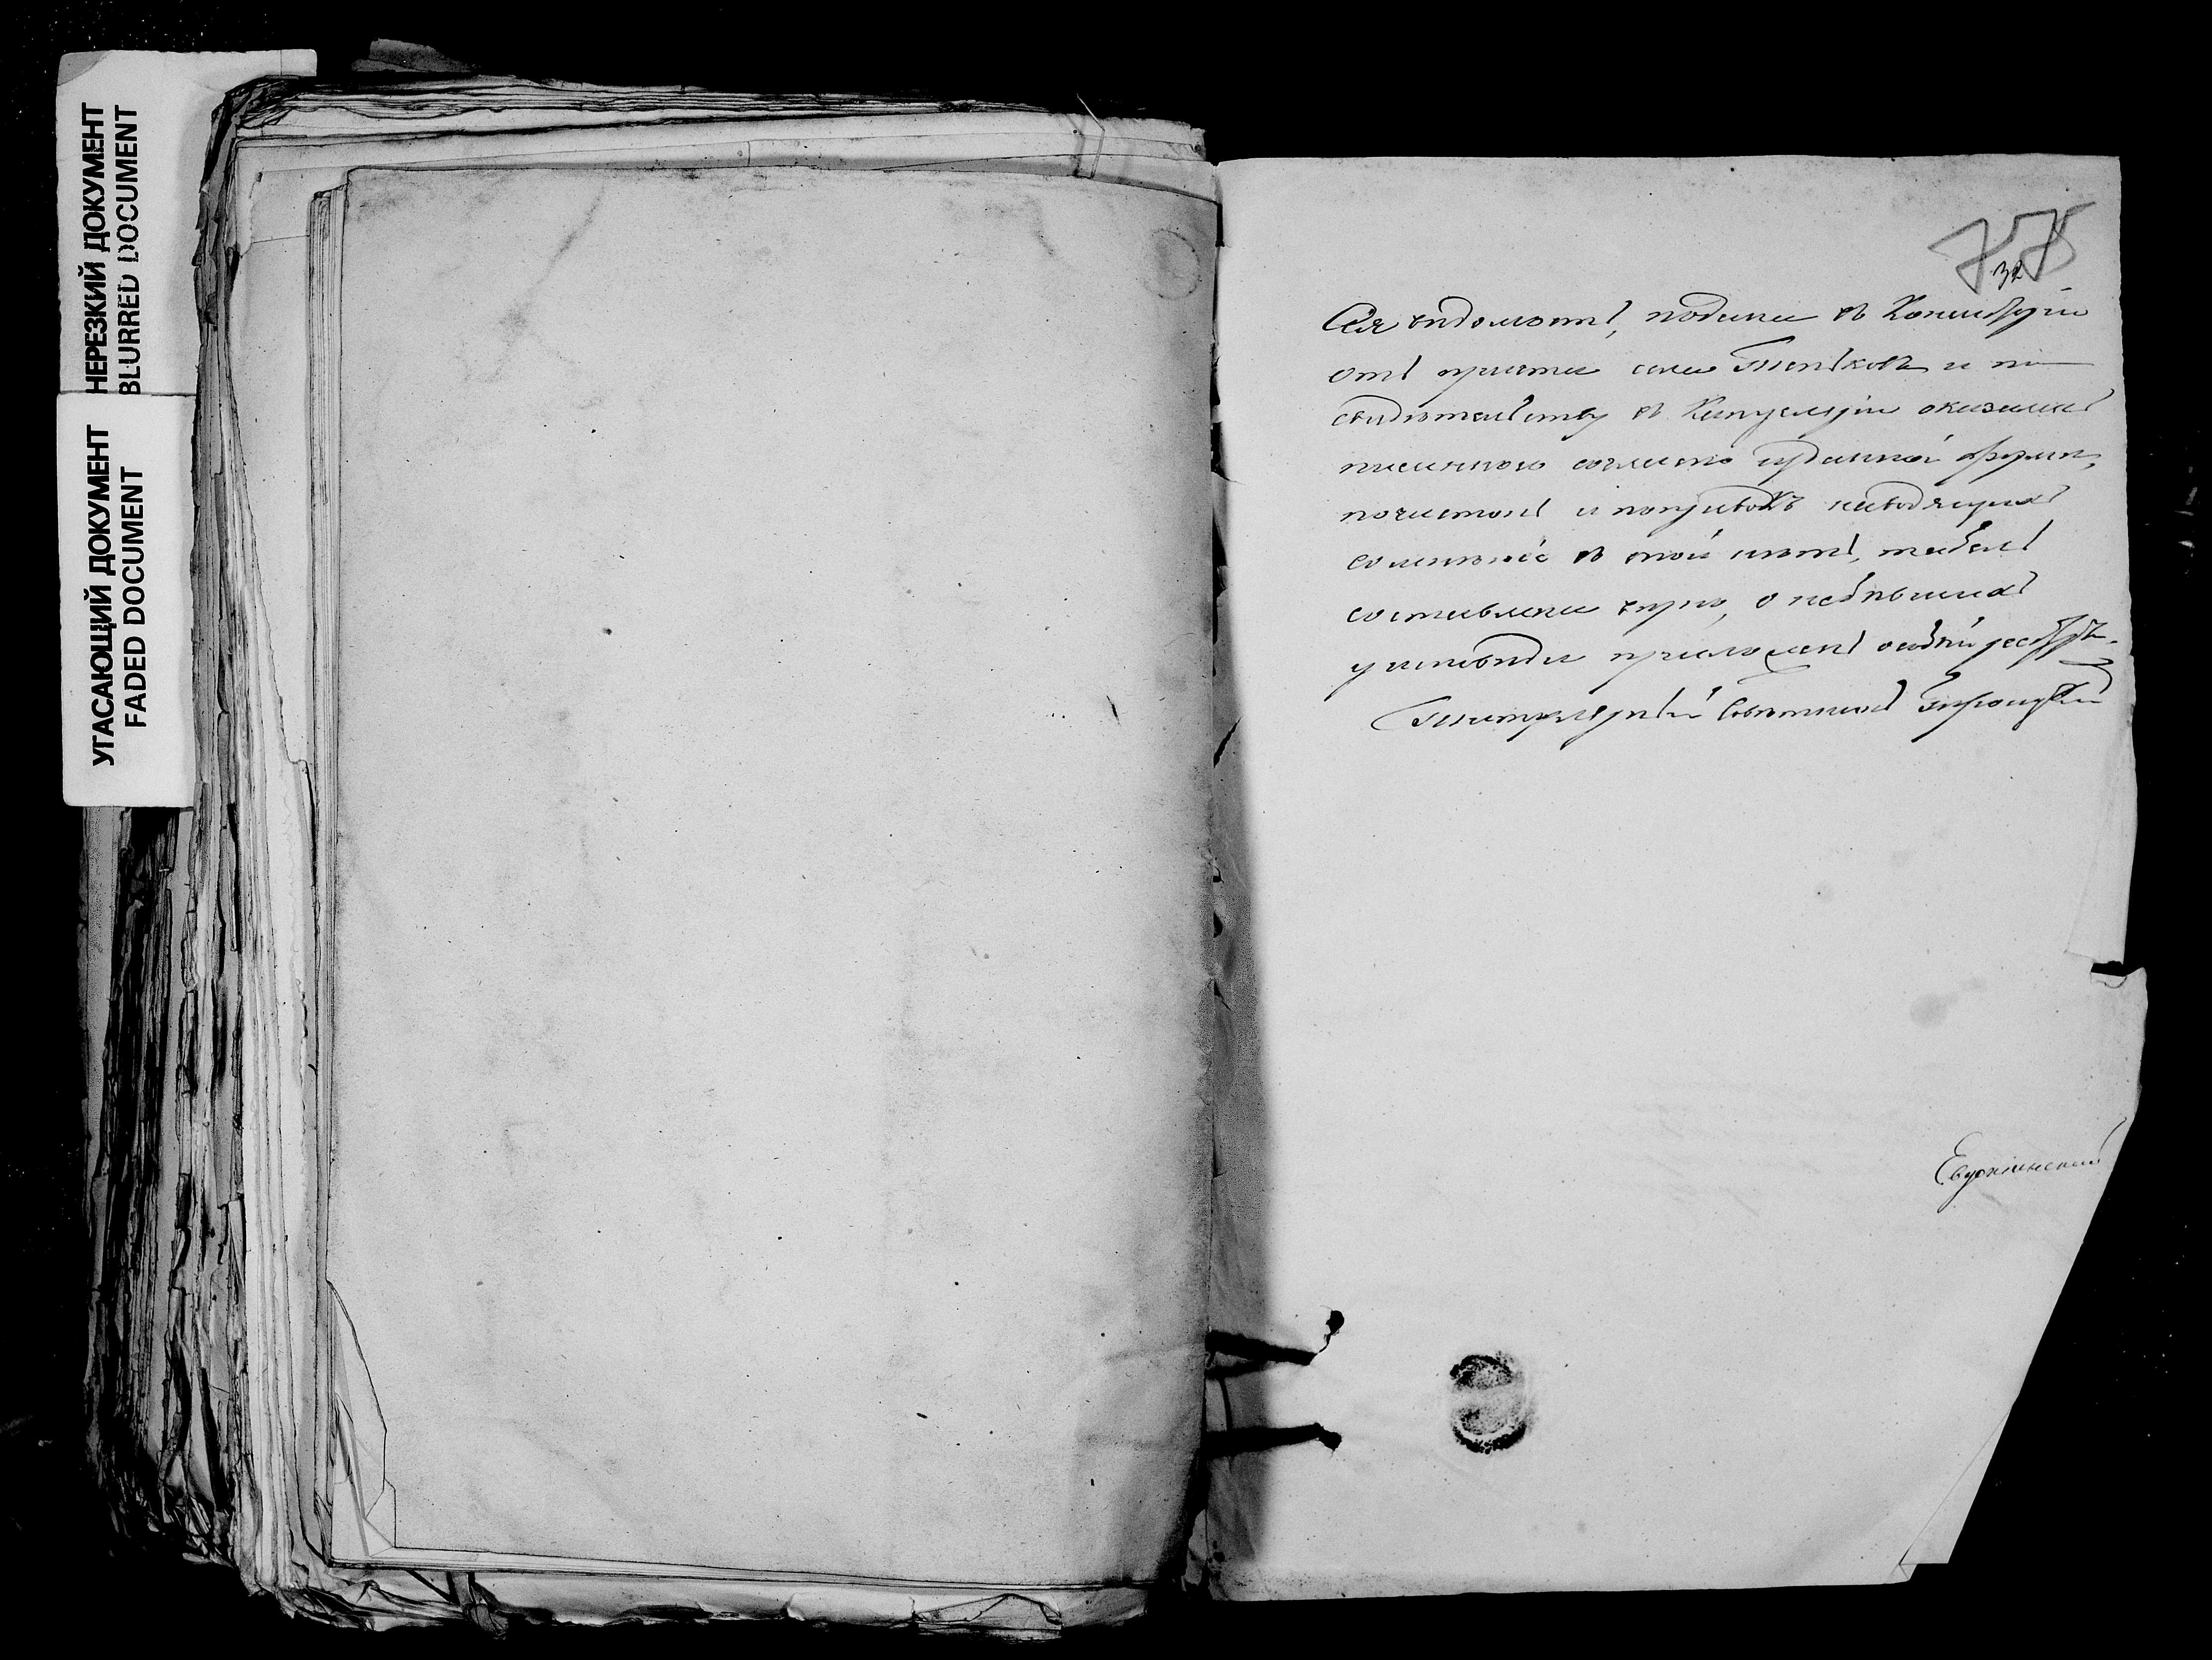 НЕРЕЗКИЙ ДОКУМЕНТ
BLURRED DOCUMENT
УГАСАЮЩИЙ ДОКУМЕНТ
FADED DOCUMENT
32
Сія вѣдомость, подана въ Консисторію
отъ причта села и по
свидѣтельству въ Канцеляріи оказалась
писанною согласно изданной формы,
почистокъ и поправокъ наводящихъ
сомнѣніе въ оной нѣтъ, табель
составлена вѣрно, о небывшихъ
у исповѣди приложенъ особый реестръ.
Титулярный Совѣтникъ